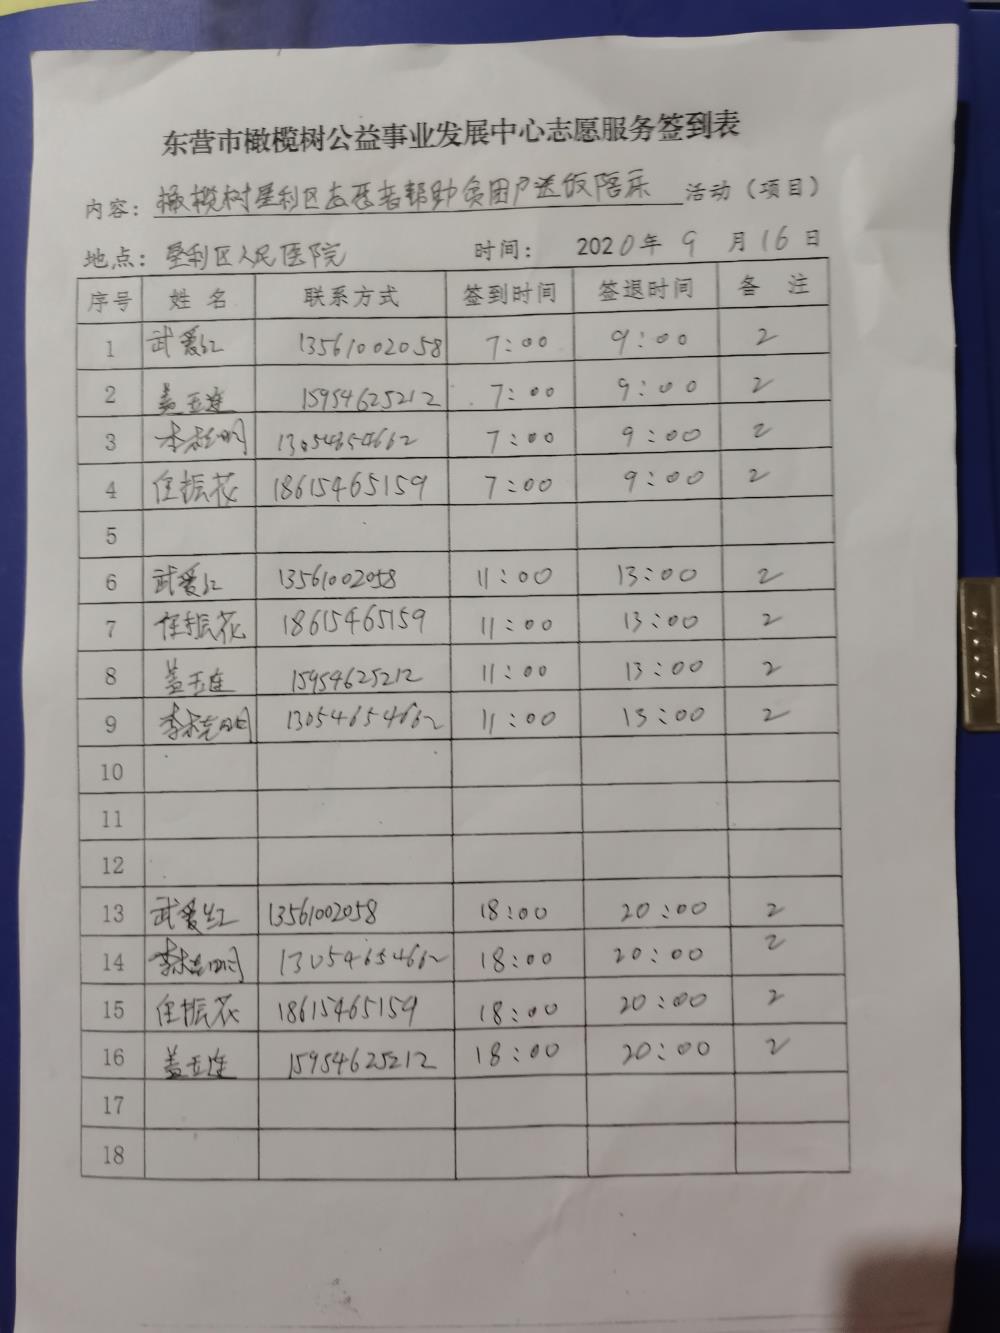 东营市橄榄树公益事业发展中心志愿服务签到表
内容：橄榄树垦利区志愿者帮助贫困户送饭陪床 活动（项目）
地点：垦利区人民医院 时间： 2020年 9 月16日
序号 姓 名 联系方式 签到时间 签退时间 备 注
1 武爱红 13561002058 7:00 9:00 2
2 盖玉连 15954625212 7:00 9:00 2
3 13054654662 7:00 9:00 2
4 任振花 18615465159 7:00 9:00 2
5
6 武爱红 13561002058 11:00 13:00 2
7 任振花 18615465159 11:00 13:00 2
8 盖玉连 15954625212 11:00 13:00 2
9 13054654662 11:00 13:00 2
10
11
12
13 武爱红 13561002058 18:00 20:00 2
14 13054654662 18:00 20:00 2
15 任振花 18615465159 18:00 20:00 2
16 盖玉连 15954625212 18:00 20:00 2
17
18